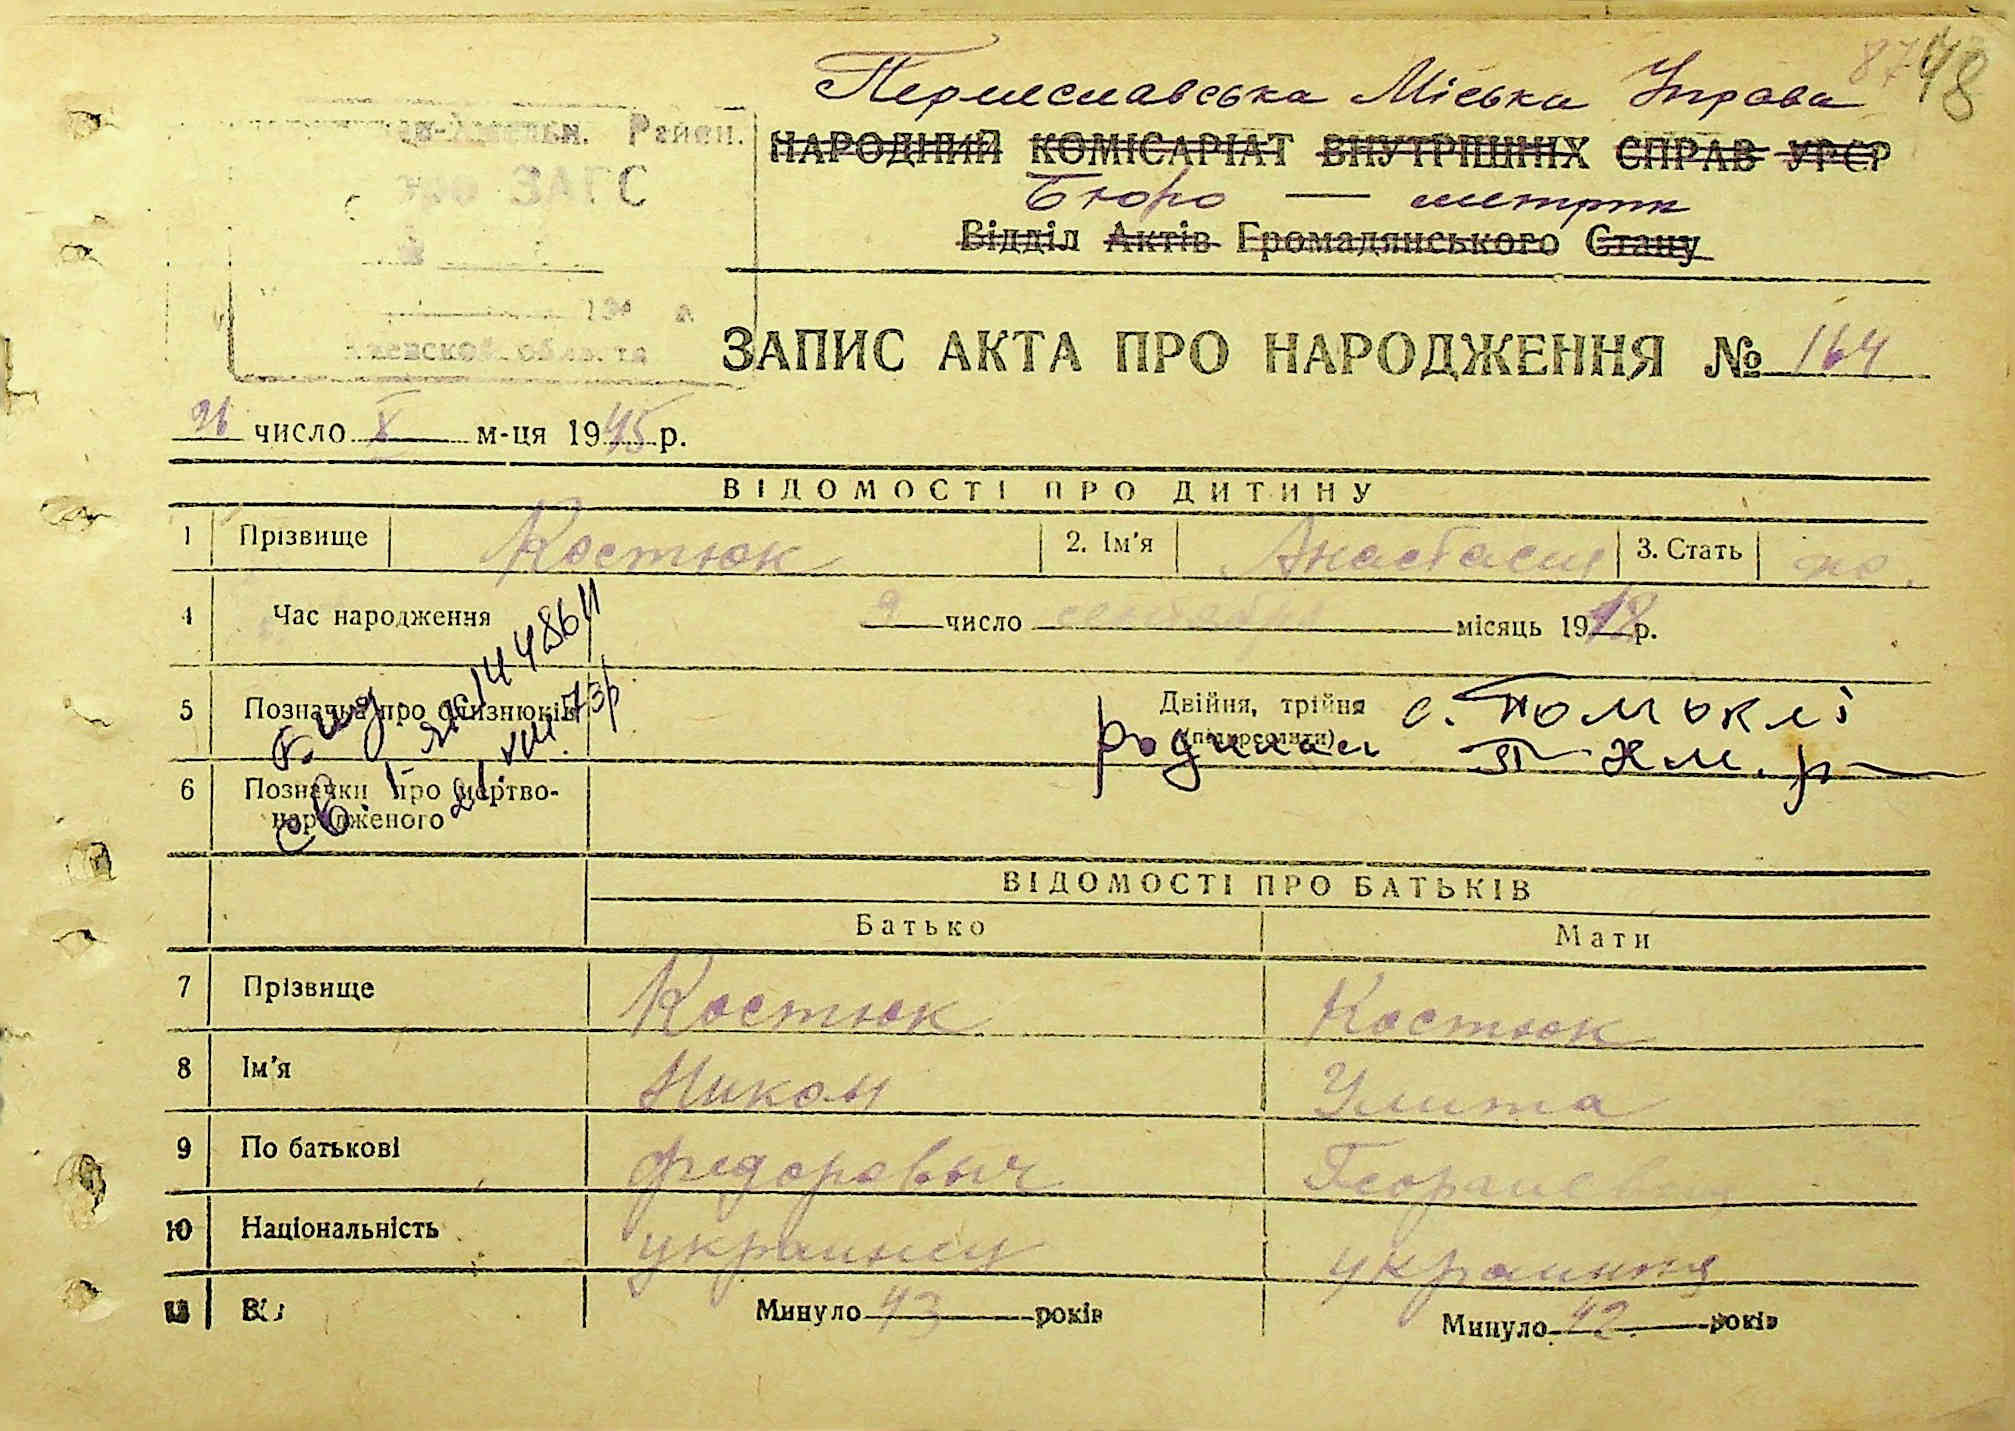 87 48
Переяславська Міська Управа
НАРОДНИЙ КОМІСАРІАТ ВНУТРІШНІХ СПРАВ УРСР
Бюро — метрик
Відділ Актів Громадянського Стану
Район.
ЗАГС
ЗАПИС АКТА ПРО НАРОДЖЕННЯ № 164
число X м-ця 1945 р.
ВІДОМОСТІ ПРО ДИТИНУ
1 Прізвище Костюк 2. Ім'я Анастасия 3. Стать
4 Час народження 9 число сентября місяць 1918 р.
5 Позначка про близнюків Двійня, трійня (підкреслити)
родилась с. Помоклі
6 Позначки про мертвонародженого
ВІДОМОСТІ ПРО БАТЬКІВ
Батько Мати
7 Прізвище Костюк Костюк
8 Ім'я Никон Улита
9 По батькові Федоровыч
10 Національність украинец украинка
11 Минуло 43 років Минуло 42 років